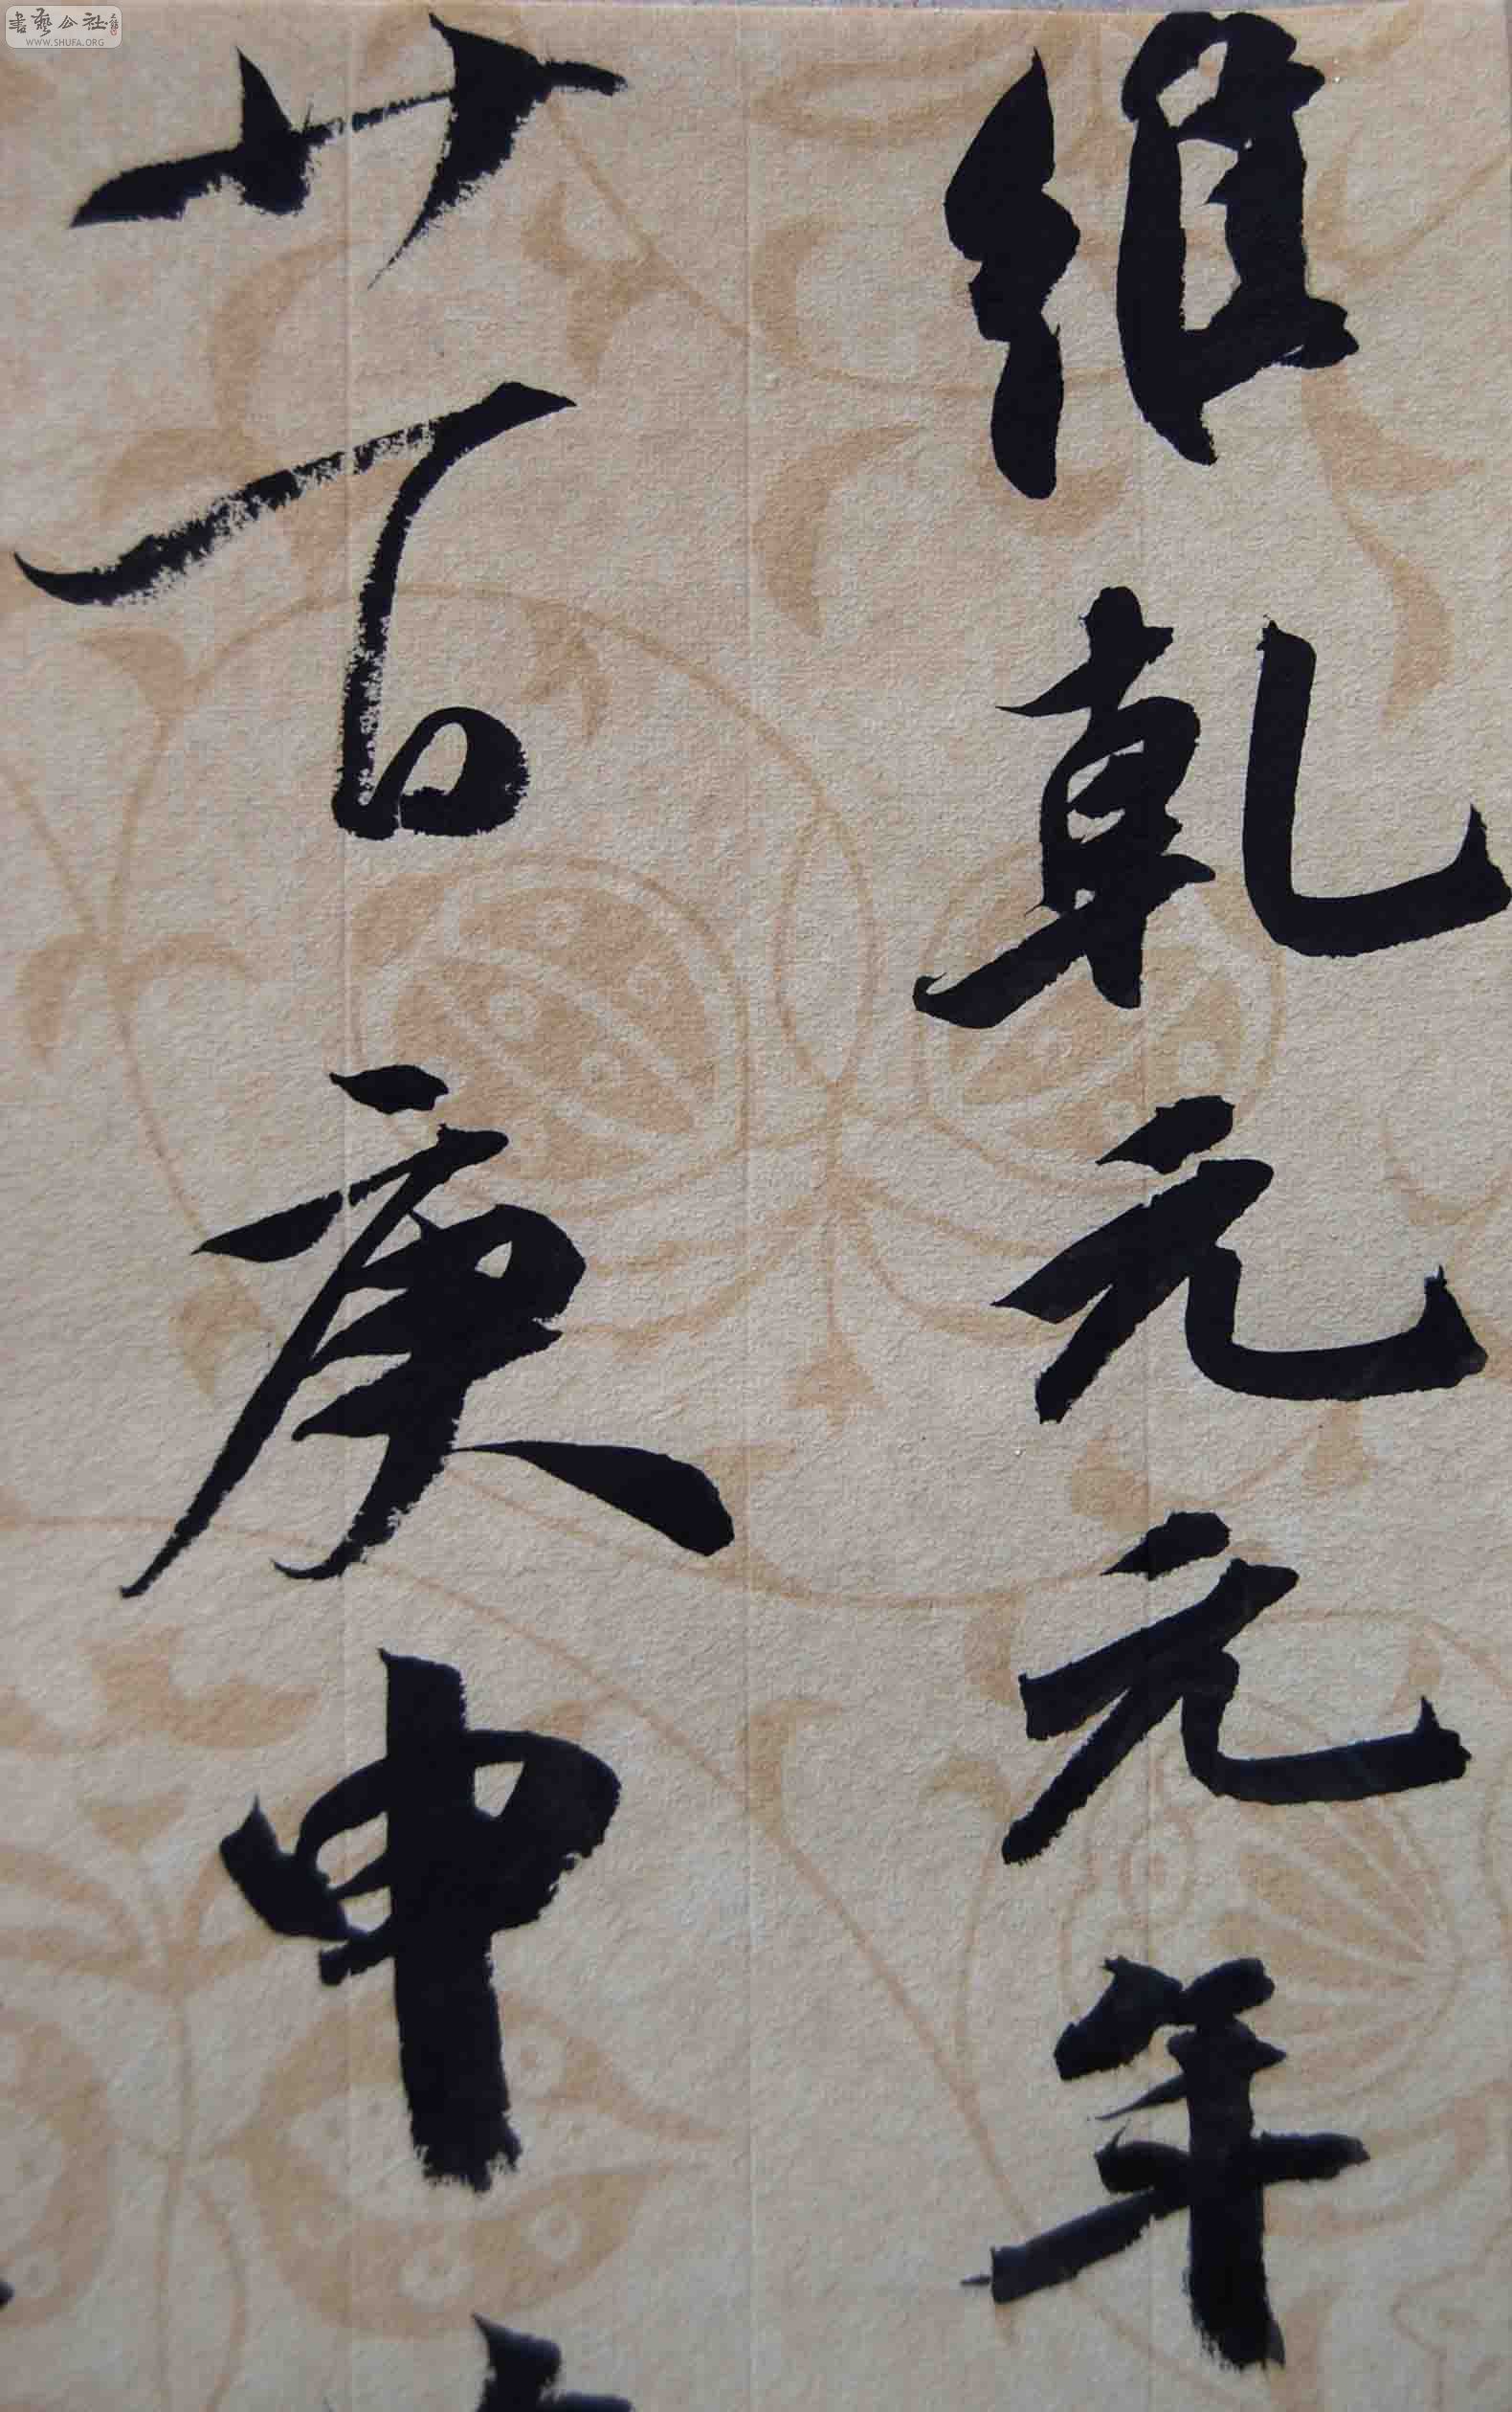 書藝公社
WWW.SHUFA.ORG
維乾元元年
廿一日庚申